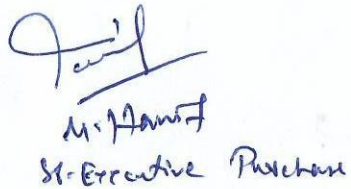 M. Hanif
Sr. Executive Purchase